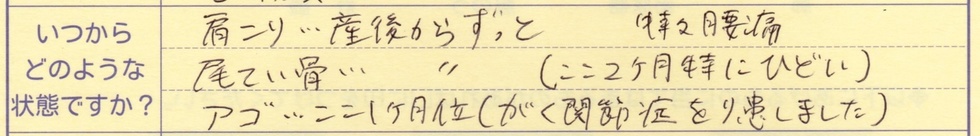 いつから
どのような
状態ですか?
肩こり…産後からずっと 特に腰痛
尾てい骨… 〃 (ここ2ヶ月特にひどい)
アゴ…ここ1ヶ月位(がく関節症をり患しました)